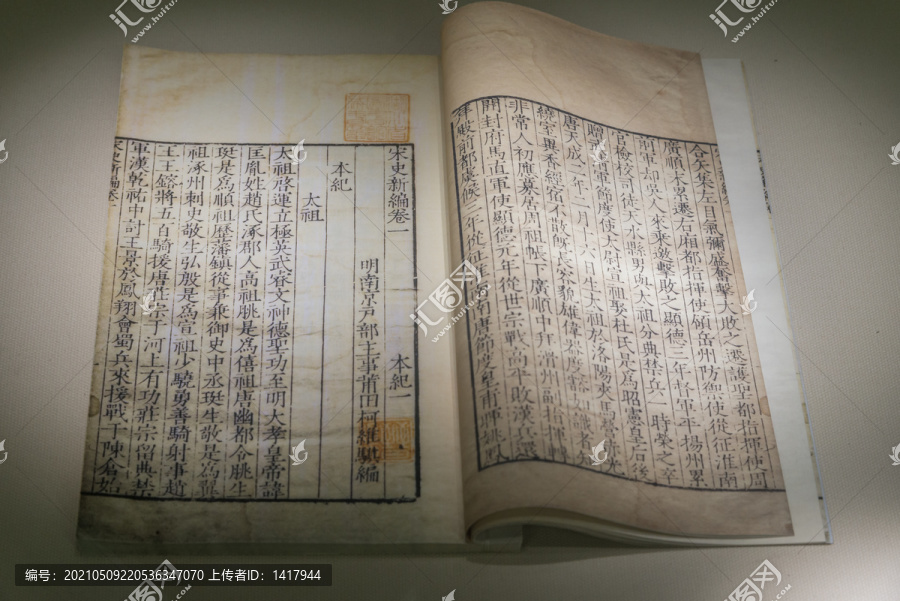 宋史新編卷一 本紀一
明南京戶部主事莆田柯維騏編
本紀
太祖
太祖啓運立極英武睿文神德聖功至明大孝皇帝諱
匡胤姓趙氏涿郡人高祖朓是為僖祖唐幽都令朓生
珽是為順祖歷藩鎮從事兼御史中丞珽生敬是為翼
祖涿州刺史敬生弘殷是為宣祖少驍勇善騎射事趙
王王鎔將五百騎援唐莊宗于河上有功莊宗留典禁
軍漢乾祐中討王景於鳳翔會蜀兵來援戰于陳倉始
宋史新編卷一
合矢集左目氣彌盛奮擊大敗之遷護聖都指揮使周
廣順末累遷右廂都指揮使領岳州防禦使從征淮南
前軍却吳人來乘邀擊敗之顯德三年督軍平揚州累
官檢校司徒天水縣男與太祖分典禁兵一時榮之卒
贈軍節度使太尉宣祖娶杜氏是為昭憲皇后後
唐天成二年二月十六日生太祖於洛陽夾馬營
繞室異香經宿不散既長容貌雄偉器度豁如識者知
非常人初應募居周祖帳下廣順中拜滑州副指揮轉
開封府馬直軍使顯德元年從世宗戰高平敗漢兵還
拜殿前都虞候二年從征淮南南唐節度皇甫暉姚鳳
编号：20210509220536347070 上传者ID：1417944